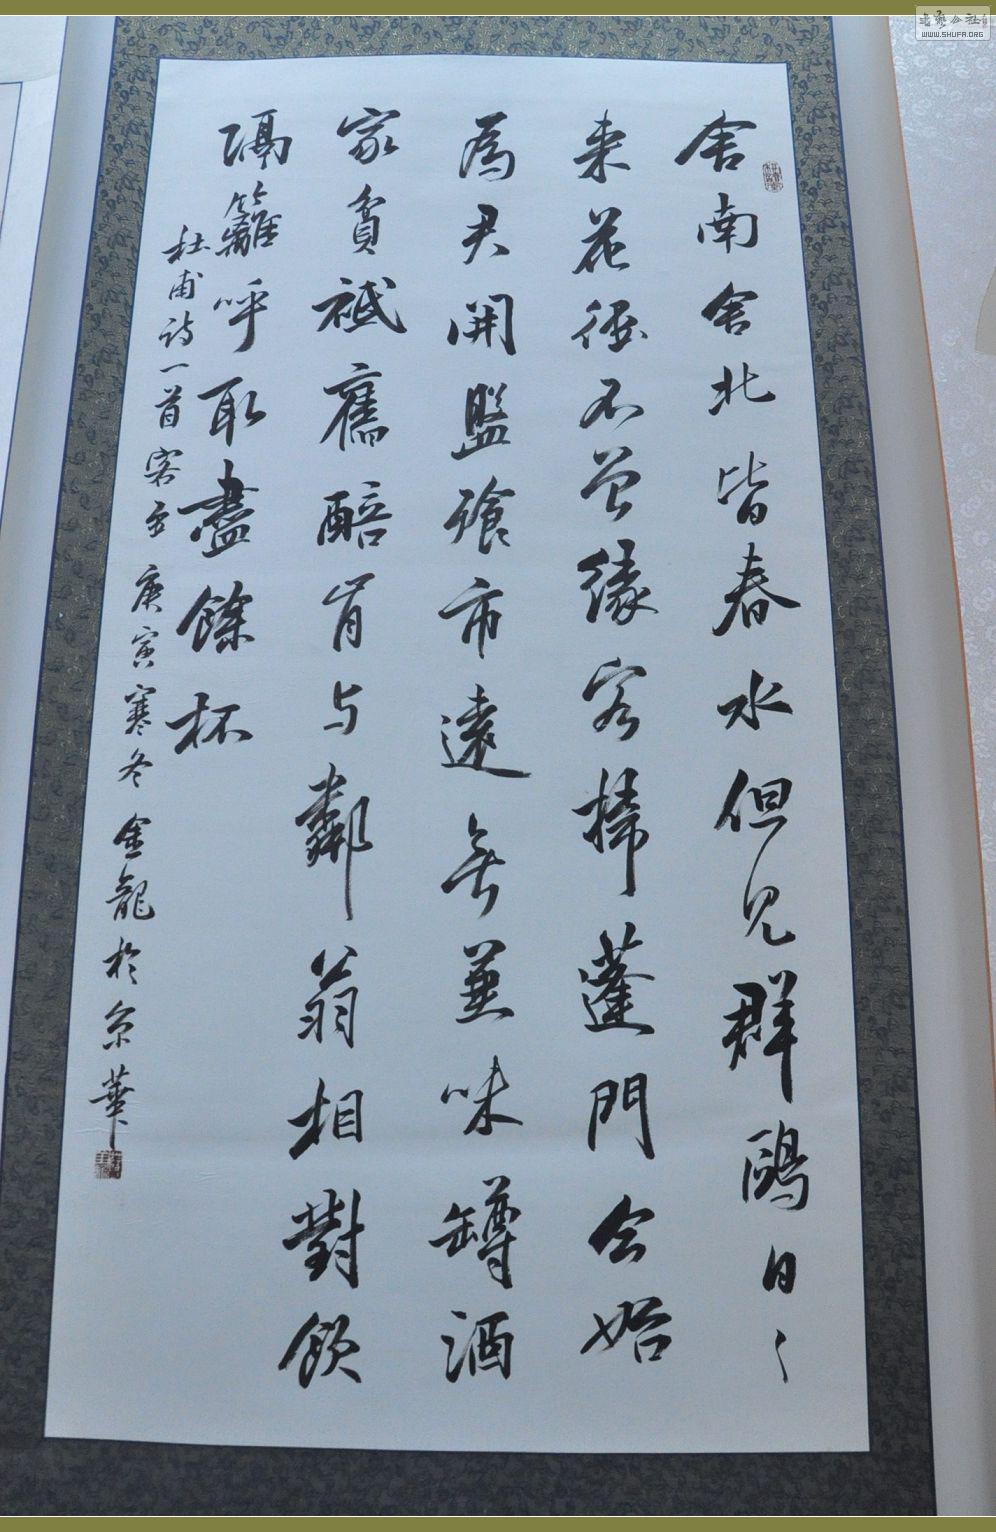 舍南舍北皆春水但見群鷗日〻
来花徑不曾緣客掃蓬門今始
為君開盤飧市遠無兼味罇酒
家貧祗舊醅肯与鄰翁相對飲
隔籬呼取盡餘杯
杜甫詩一首客至 庚寅寒冬金龍於京華
WWW.SHUFA.ORG